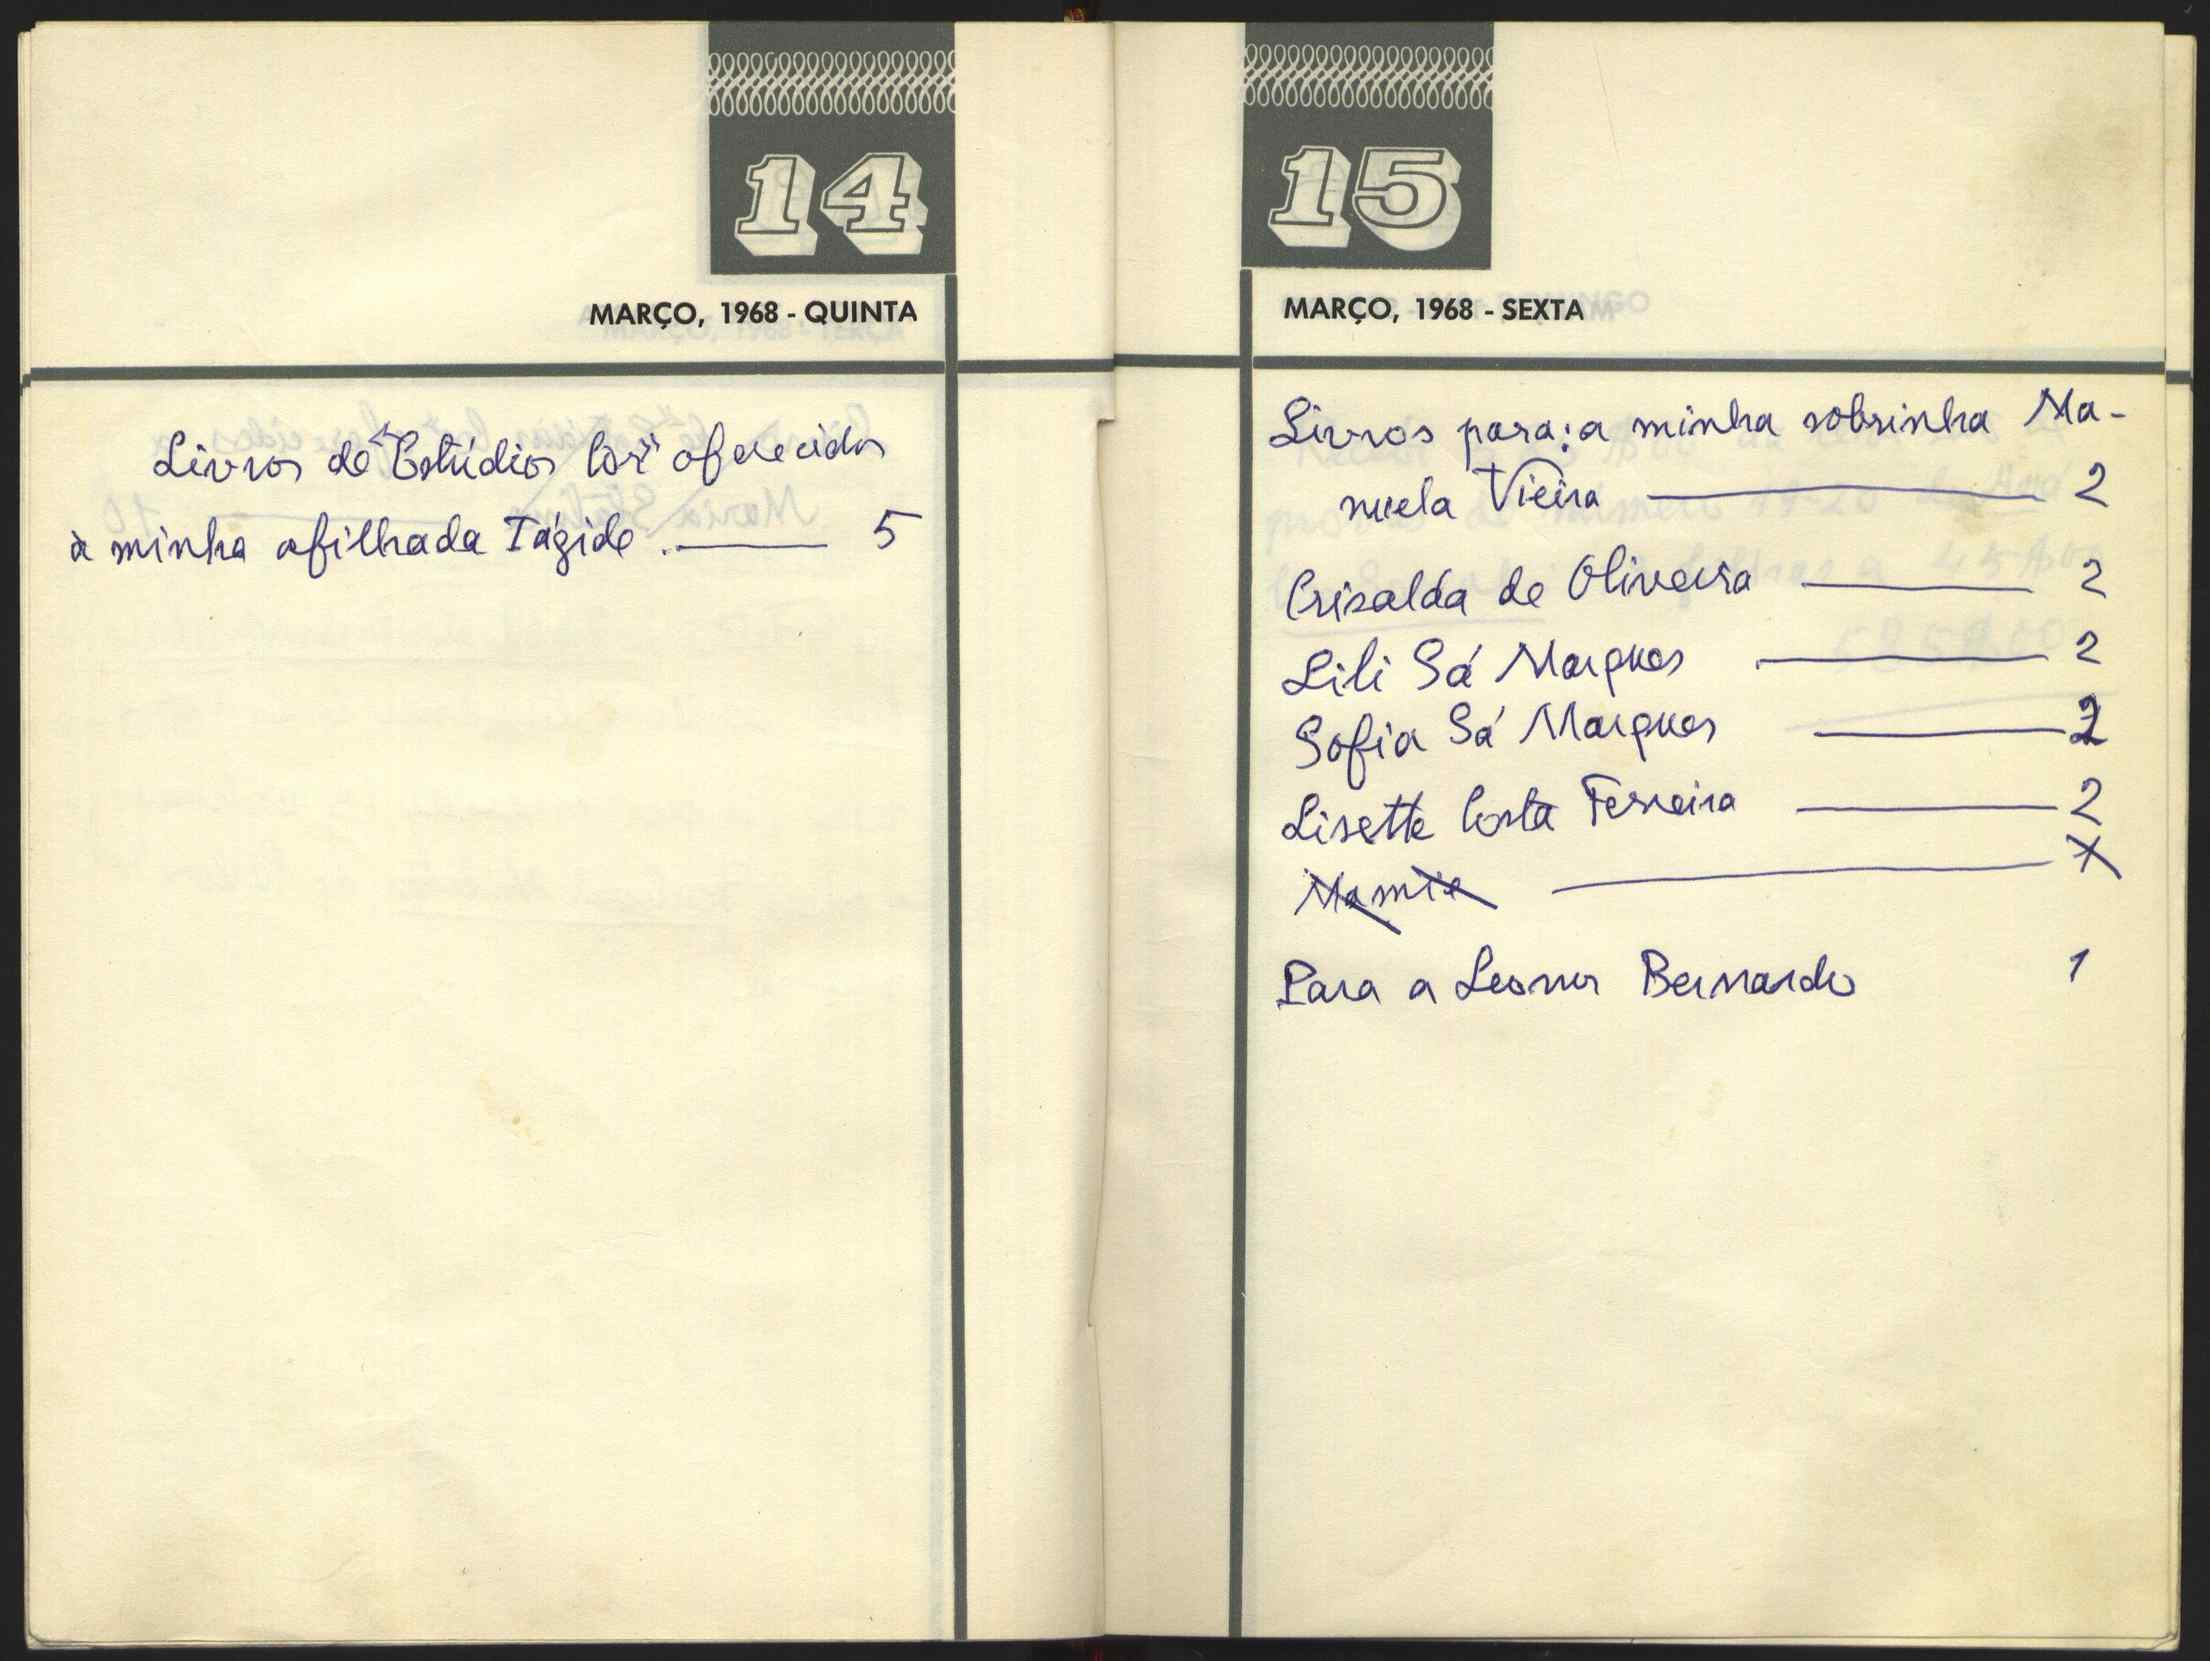 14
MARÇO, 1968 - QUINTA
Livros de "Estúdios Cor" oferecidos
à minha afilhada Tágide. — 5
15
MARÇO, 1968 - SEXTA
Livros para: a minha sobrinha Ma-
nuela Vieira — 2
Crisalda de Oliveira — 2
Lili Sá Marques — 2
Sofia Sá Marques — 2
Lisette Costa Ferreira — 2
Mamie — 
Para a Leonor Bernardo 1